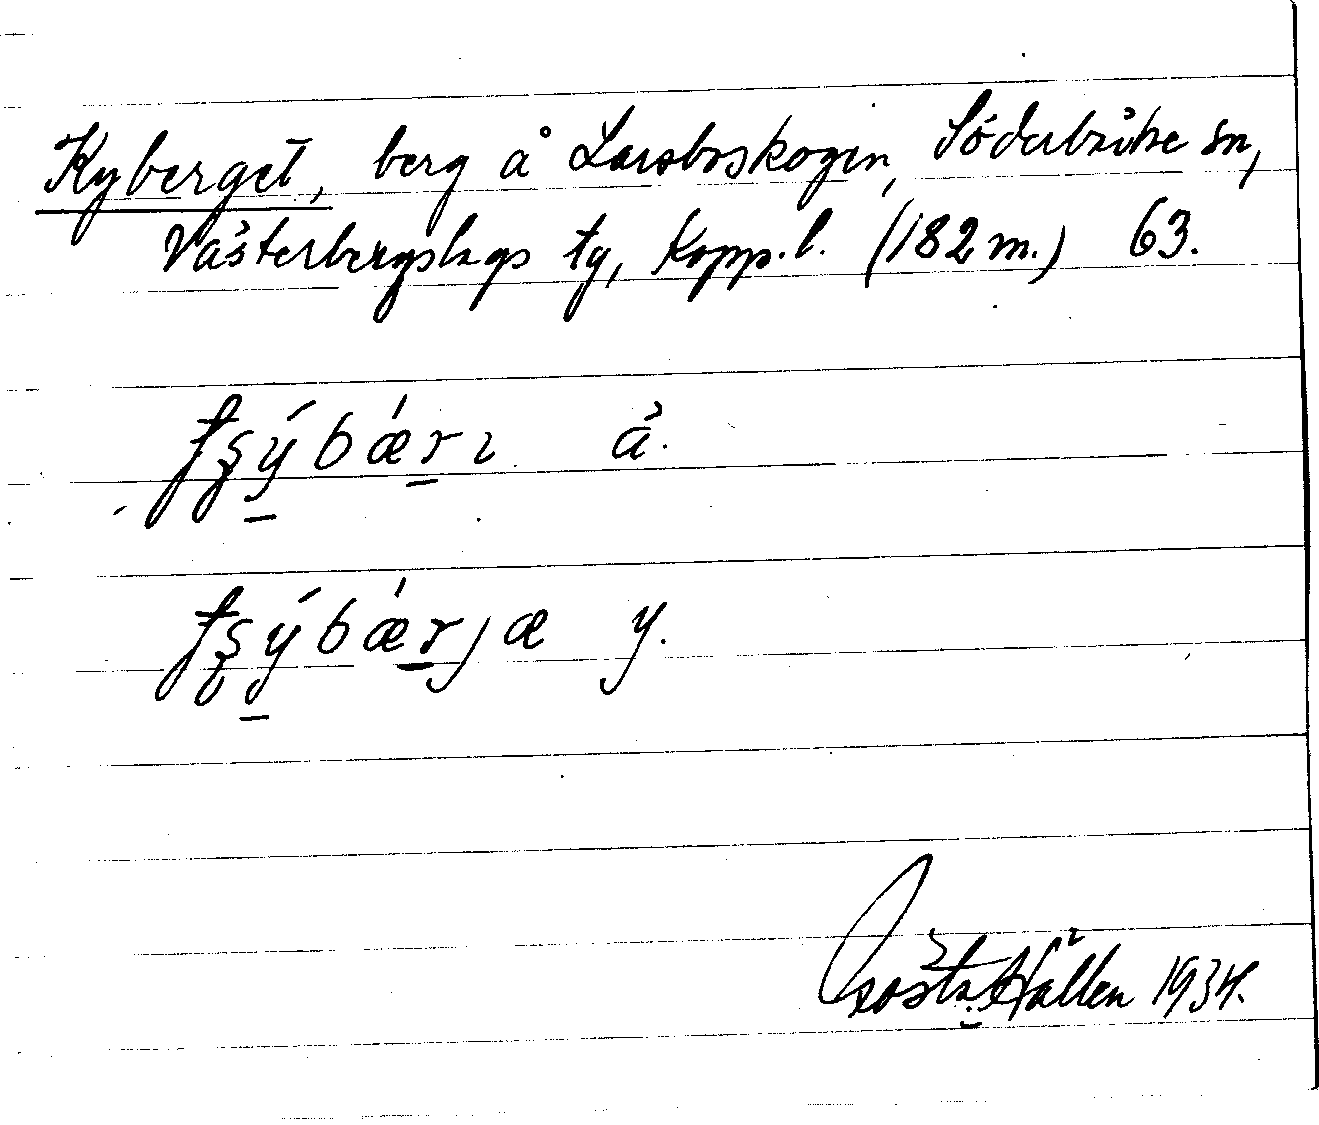 Kyberget, berg å Larsboskogen, Söderbärke sn,
Västerbergslags tg, Kopp. l. (182 m.) 63.
ʈʂýbǽrı ä.
ʈʂýbǽrjæ y.
Gösta Hallén 1934.